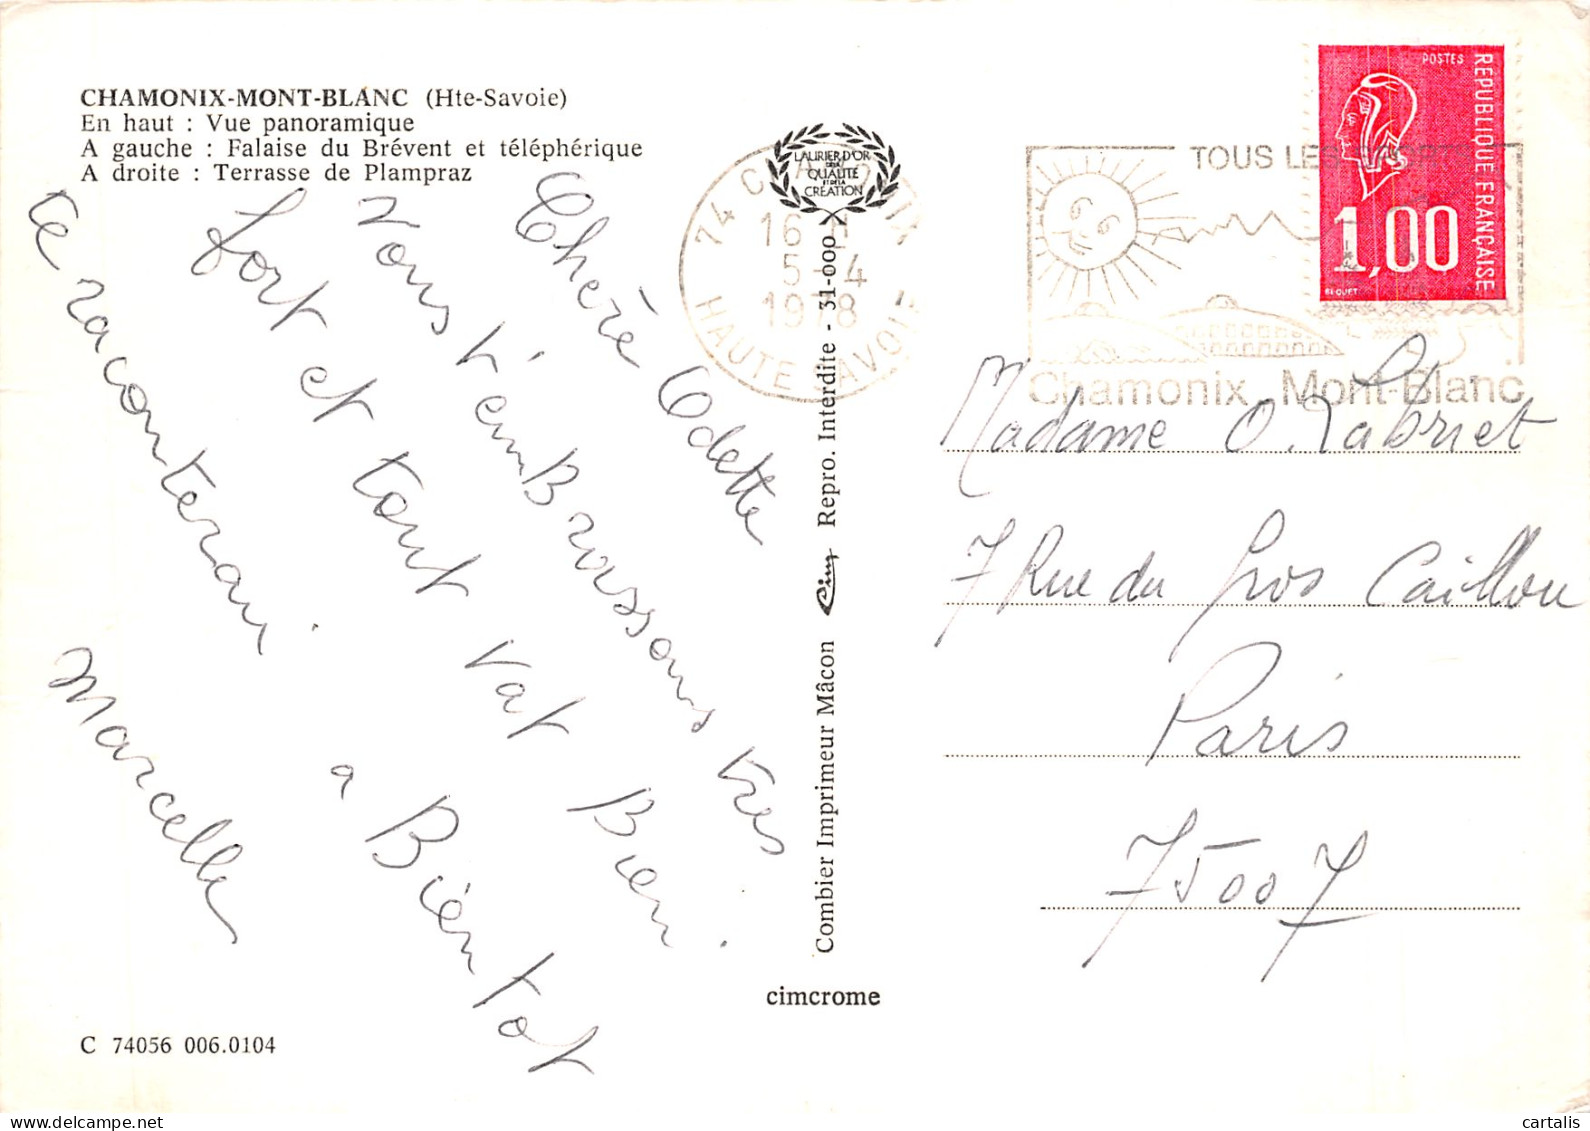 CHAMONIX-MONT-BLANC (Hte-Savoie)
En haut : Vue panoramique
A gauche : Falaise du Brévent et téléphérique
A droite : Terrasse de Plampraz
Chère Odette
Nous t'emBrassons très
fort et tout vat Bien.
a Bientot
te raconterai.
Marcelle
C 74056 006.0104
cimcrome
Combier Imprimeur Mâcon Cim Repro. Interdite - 31-000
LAURIER D'OR
DE LA
QUALITÉ
ET DE LA
CRÉATION
74 CHAMONIX
16 H
5-4
1978
HAUTE SAVOIE
TOUS LES SPORTS
Chamonix Mont-Blanc
POSTES
REPUBLIQUE FRANÇAISE
1,00
BEQUET
Madame O. Labriet
7 Rue du Gros Caillou
Paris
75007
cartalis
delcampe.net